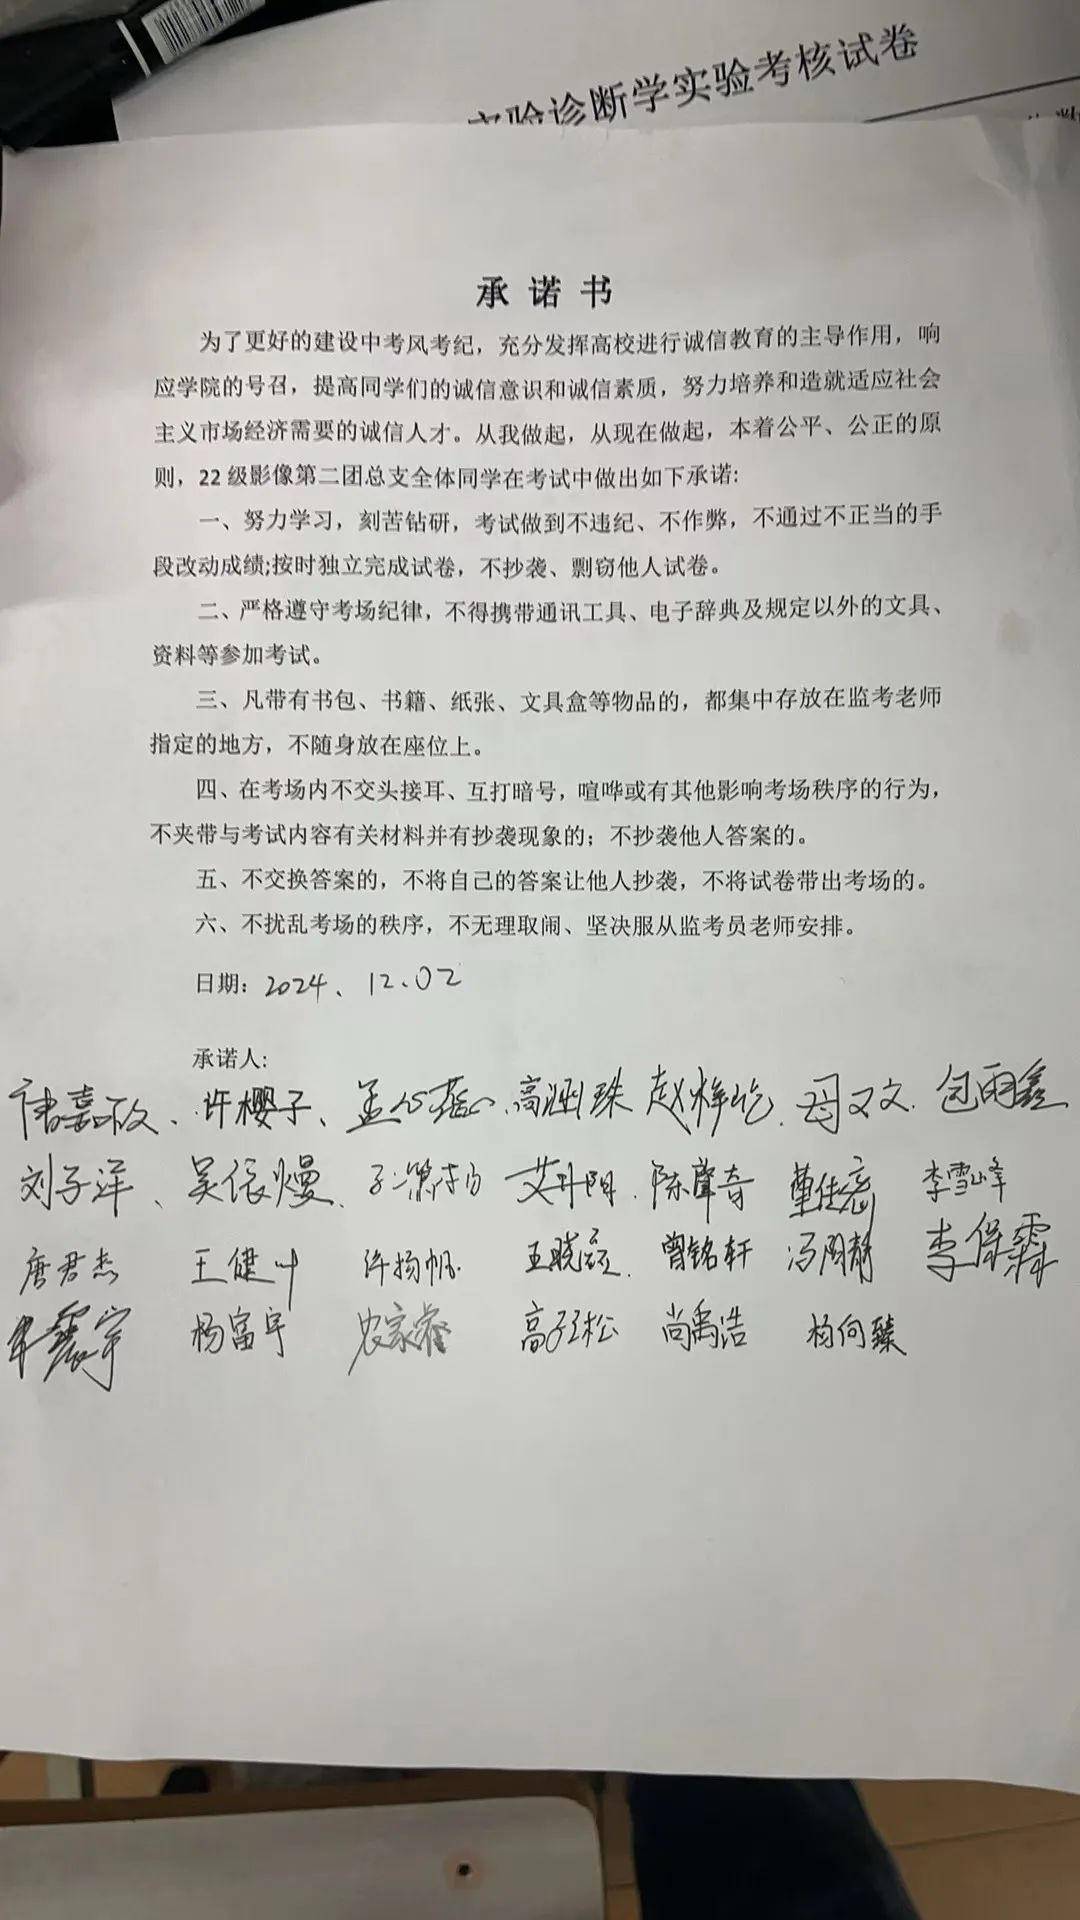 实验诊断学实验考核试卷
承诺书
为了更好的建设中考风考纪，充分发挥高校进行诚信教育的主导作用，响
应学院的号召，提高同学们的诚信意识和诚信素质，努力培养和造就适应社会
主义市场经济需要的诚信人才。从我做起，从现在做起，本着公平、公正的原
则，22级影像第二团总支全体同学在考试中做出如下承诺:
一、努力学习，刻苦钻研，考试做到不违纪、不作弊，不通过不正当的手
段改动成绩;按时独立完成试卷，不抄袭、剽窃他人试卷。
二、严格遵守考场纪律，不得携带通讯工具、电子辞典及规定以外的文具、
资料等参加考试。
三、凡带有书包、书籍、纸张、文具盒等物品的，都集中存放在监考老师
指定的地方，不随身放在座位上。
四、在考场内不交头接耳、互打暗号，喧哗或有其他影响考场秩序的行为，
不夹带与考试内容有关材料并有抄袭现象的；不抄袭他人答案的。
五、不交换答案的，不将自己的答案让他人抄袭，不将试卷带出考场的。
六、不扰乱考场的秩序，不无理取闹、坚决服从监考员老师安排。
日期: 2024、12.02
承诺人:
许樱子、高涵珠 母又文 包雨鑫
刘子洋、吴依嫚 艾升阳 陈馨奇 董佳宬 李雪峰
唐君杰 王健叶 许扬帆 曾铭轩 冯雨静 李保霖
牟震宇 杨富宇 农家睿 高子松 尚禹浩 杨向臻